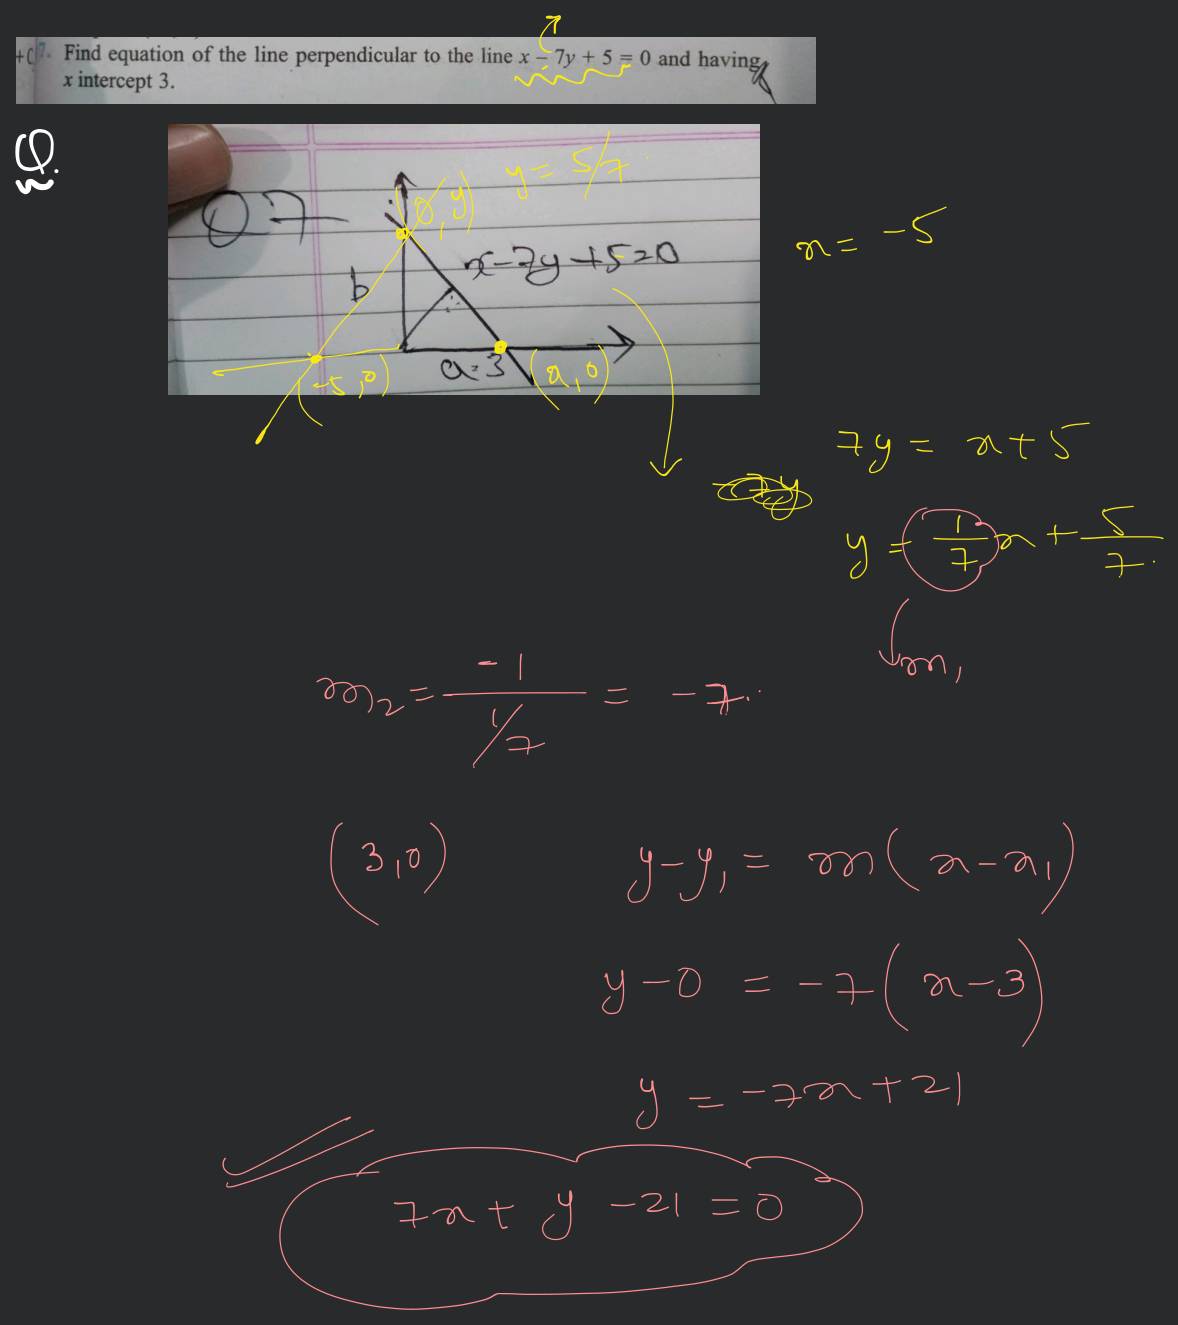 7. Find equation of the line perpendicular to the line x − 7y + 5 = 0 and having
x intercept 3.
Q.
Q7
(0, y) y = 5/7
x - 7y + 5 = 0
b
(-5, 0)
a = 3
(a, 0)
x = -5
7y = x + 5
y = 1/7 x + 5/7
m1
m2 = -1 / (1/7) = -7
(3, 0)
y - y1 = m(x - x1)
y - 0 = -7(x - 3)
y = -7x + 21
7x + y - 21 = 0